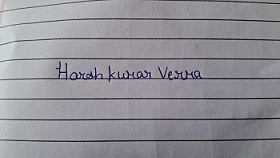 Harsh kumar Verma